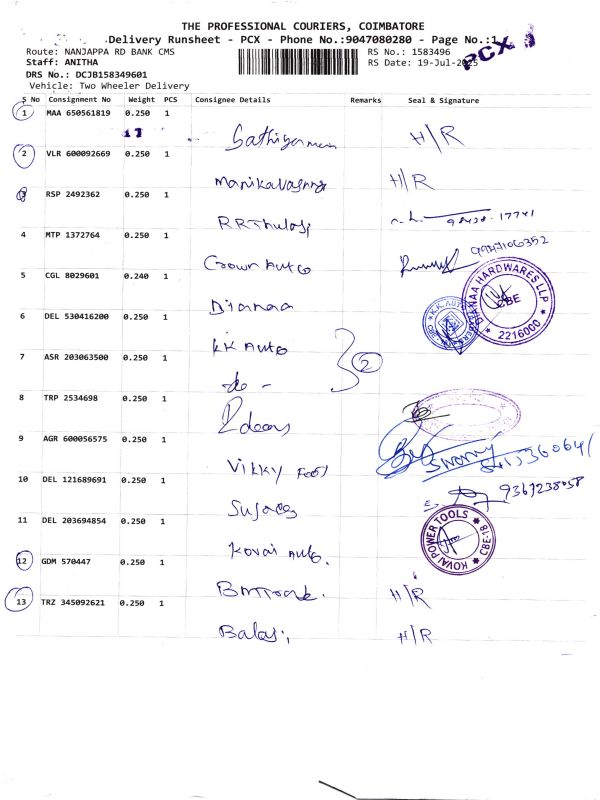 THE PROFESSIONAL COURIERS, COIMBATORE
Delivery Runsheet - PCX - Phone No.:9047080280 - Page No.:1
PCX
Route: NANJAPPA RD BANK CMS
RS No.: 1583496
Staff: ANITHA
RS Date: 19-Jul-2025
DRS No.: DCJB158349601
Vehicle: Two Wheeler Delivery
S No Consignment No Weight PCS Consignee Details Remarks Seal & Signature
1 MAA 650561819 0.250 1
17
H/R
2 VLR 600092669 0.250 1
H/R
3 RSP 2492362 0.250 1
RRThulasi
98438.17741
4 MTP 1372764 0.250 1
Crown Auto
9947106352
5 CGL 8029601 0.240 1
Dianaa
DIANAA HARDWARES LLP
CBE
2216000
6 DEL 530416200 0.250 1
KK Auto
K.K. AUTO
7 ASR 203063500 0.250 1
do -
2
8 TRP 2534698 0.250 1
9 AGR 600056575 0.250 1
Vikky
Swamy
10 DEL 121689691 0.250 1
9367238058
11 DEL 203694854 0.250 1
Kovai Auto.
KOVAI POWER TOOLS
CBE-18
12 GDM 570447 0.250 1
H/R
13 TRZ 345092621 0.250 1
Balaji
H/R